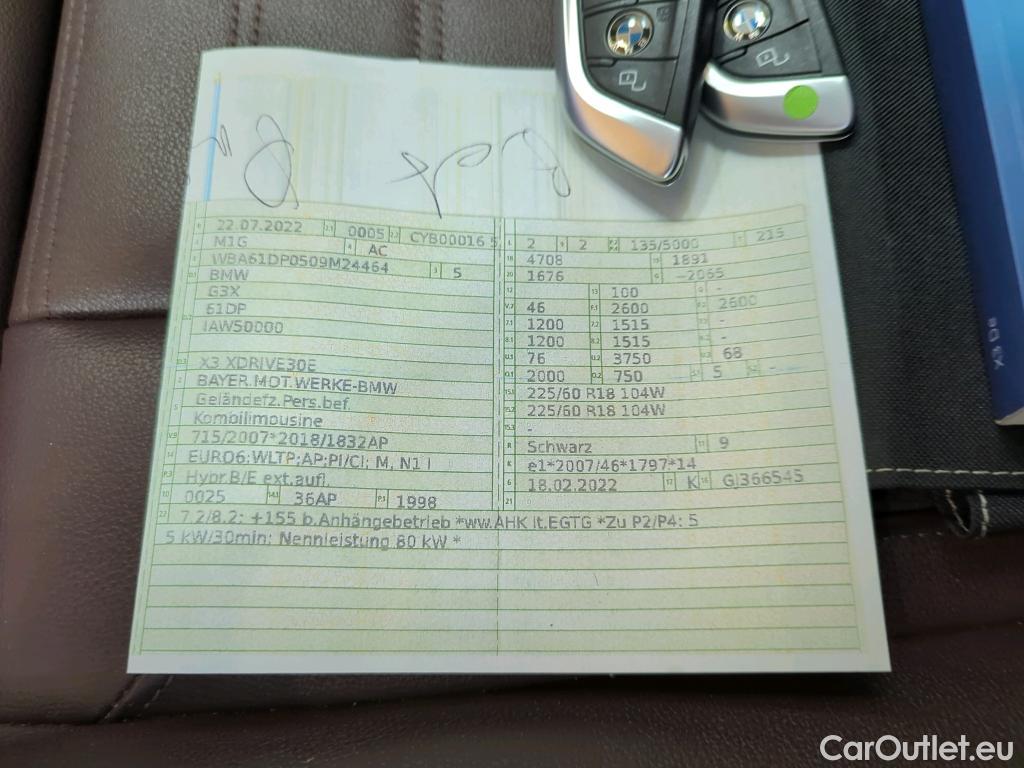 22.07.2022 0005 CYB00016 5
M1G AC
WBA61DP0509M24464 5
BMW
G3X
61DP
IAW50000
X3 XDRIVE30E
BAYER.MOT.WERKE-BMW
Geländefz.Pers.bef.
Kombilimousine
715/2007*2018/1832AP
EURO6;WLTP;AP;PI/CI; M, N1 I
Hybr.B/E ext.aufl.
0025 36AP 1998
2 2 135/5000 215
4708 1891
1676 -2065
100 -
46 2600 2600
1200 1515 -
1200 1515 -
76 3750 68
2000 750 5 -
225/60 R18 104W
225/60 R18 104W
-
Schwarz 9
e1*2007/46*1797*14
18.02.2022 K GJ366545
7.2/8.2: +155 b.Anhängebetrieb *ww.AHK lt.EGTG *Zu P2/P4: 5
5 kW/30min; Nennleistung 80 kW *
CarOutlet.eu